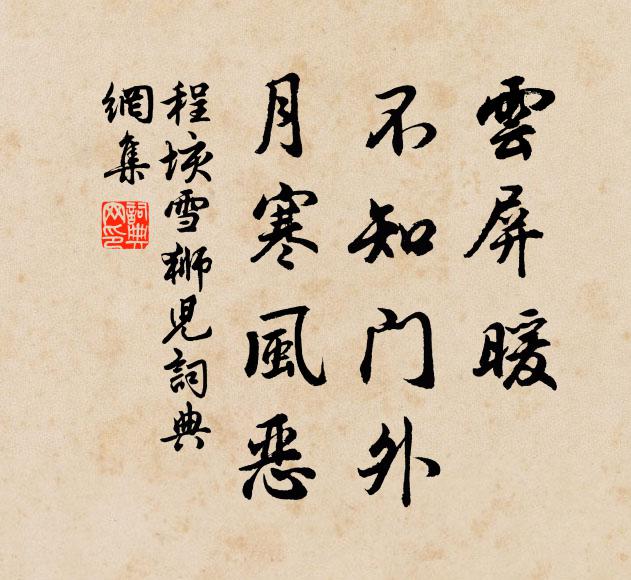 雲屏暖
不知門外
月寒風惡
程垓雪獅兒詞典
網集
詞典
网印